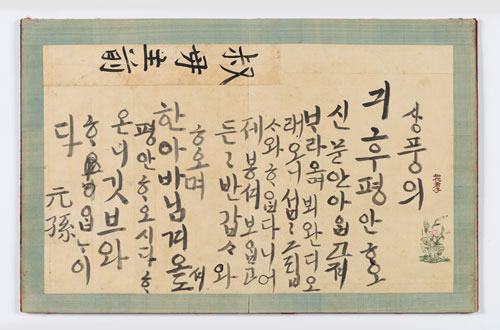 叔母主前
상풍의
긔후평안ᄒᆞ오
신 문안 아ᄋᆞᆸ고져
ᄇᆞ라오며 뵈완디 오
래오니 섭〃 그립
ᄉᆞ와 ᄒᆞᄋᆞᆸ다니 어
제 봉셔 보ᄋᆞᆸ고
든〃 반갑ᄉᆞ와
ᄒᆞ오며
한아바님 겨오셔도
평안ᄒᆞ오시다 ᄒᆞ
온니 깃브와
ᄒᆞᄋᆞᆸᄂᆞ이
다 元孫